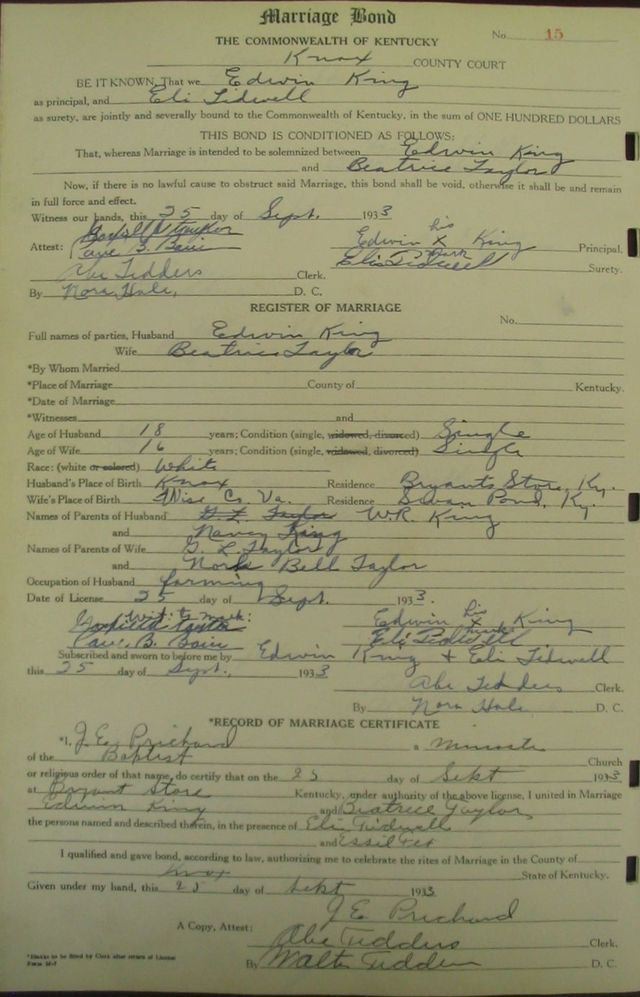 Marriage Bond
No. 15
THE COMMONWEALTH OF KENTUCKY
Knox COUNTY COURT
BE IT KNOWN, That we Edwin King
as principal, and Eli Tidwell
as surety, are jointly and severally bound to the Commonwealth of Kentucky, in the sum of ONE HUNDRED DOLLARS
THIS BOND IS CONDITIONED AS FOLLOWS:
That, whereas Marriage is intended to be solemnized between Edwin King
and Beatrice Taylor
Now, if there is no lawful cause to obstruct said Marriage, this bond shall be void, otherwise it shall be and remain
in full force and effect.
Witness our hands, this 25 day of Sept. 1933
his
Attest: Edwin X King Principal,
mark
Eli Tidwell Surety.
Abe Tedders Clerk.
By Nora Hale, D. C.
REGISTER OF MARRIAGE
No.
Full names of parties, Husband Edwin King
Wife Beatrice Taylor
*By Whom Married
*Place of Marriage County of Kentucky.
*Date of Marriage
*Witnesses and
Age of Husband 18 years; Condition (single, widowed, divorced) Single
Age of Wife 16 years; Condition (single, widowed, divorced) Single
Race: (white or colored) White
Husband's Place of Birth Knox Residence Bryants Store, Ky.
Wife's Place of Birth Wise Co. Va. Residence Swan Pond, Ky.
Names of Parents of Husband W.R. King
and Nancy King
Names of Parents of Wife G. L. Taylor
and Bell Taylor
Occupation of Husband farming
Date of License 25 day of Sept. 1933.
his
Edwin X King
mark
Eli Tidwell
Subscribed and sworn to before me by Edwin King & Eli Tidwell
this 25 day of Sept. 1933
Abe Tedders Clerk.
By Nora Hale D. C.
*RECORD OF MARRIAGE CERTIFICATE
*I, J. E. Prichard a Minister
of the Baptist Church
or religious order of that name, do certify that on the 25 day of Sept 1933
at Bryant Store Kentucky, under authority of the above license, I united in Marriage
Edwin King and Beatrice Taylor
the persons named and described therein, in the presence of Eli Tidwell
and Essie
I qualified and gave bond, according to law, authorizing me to celebrate the rites of Marriage in the County of
Knox State of Kentucky.
Given under my hand, this 25 day of Sept 1933
J E Prichard
A Copy, Attest:
Abe Tedders Clerk.
By Walter Tedders D. C.
*Blanks to be filled by Clerk after return of License